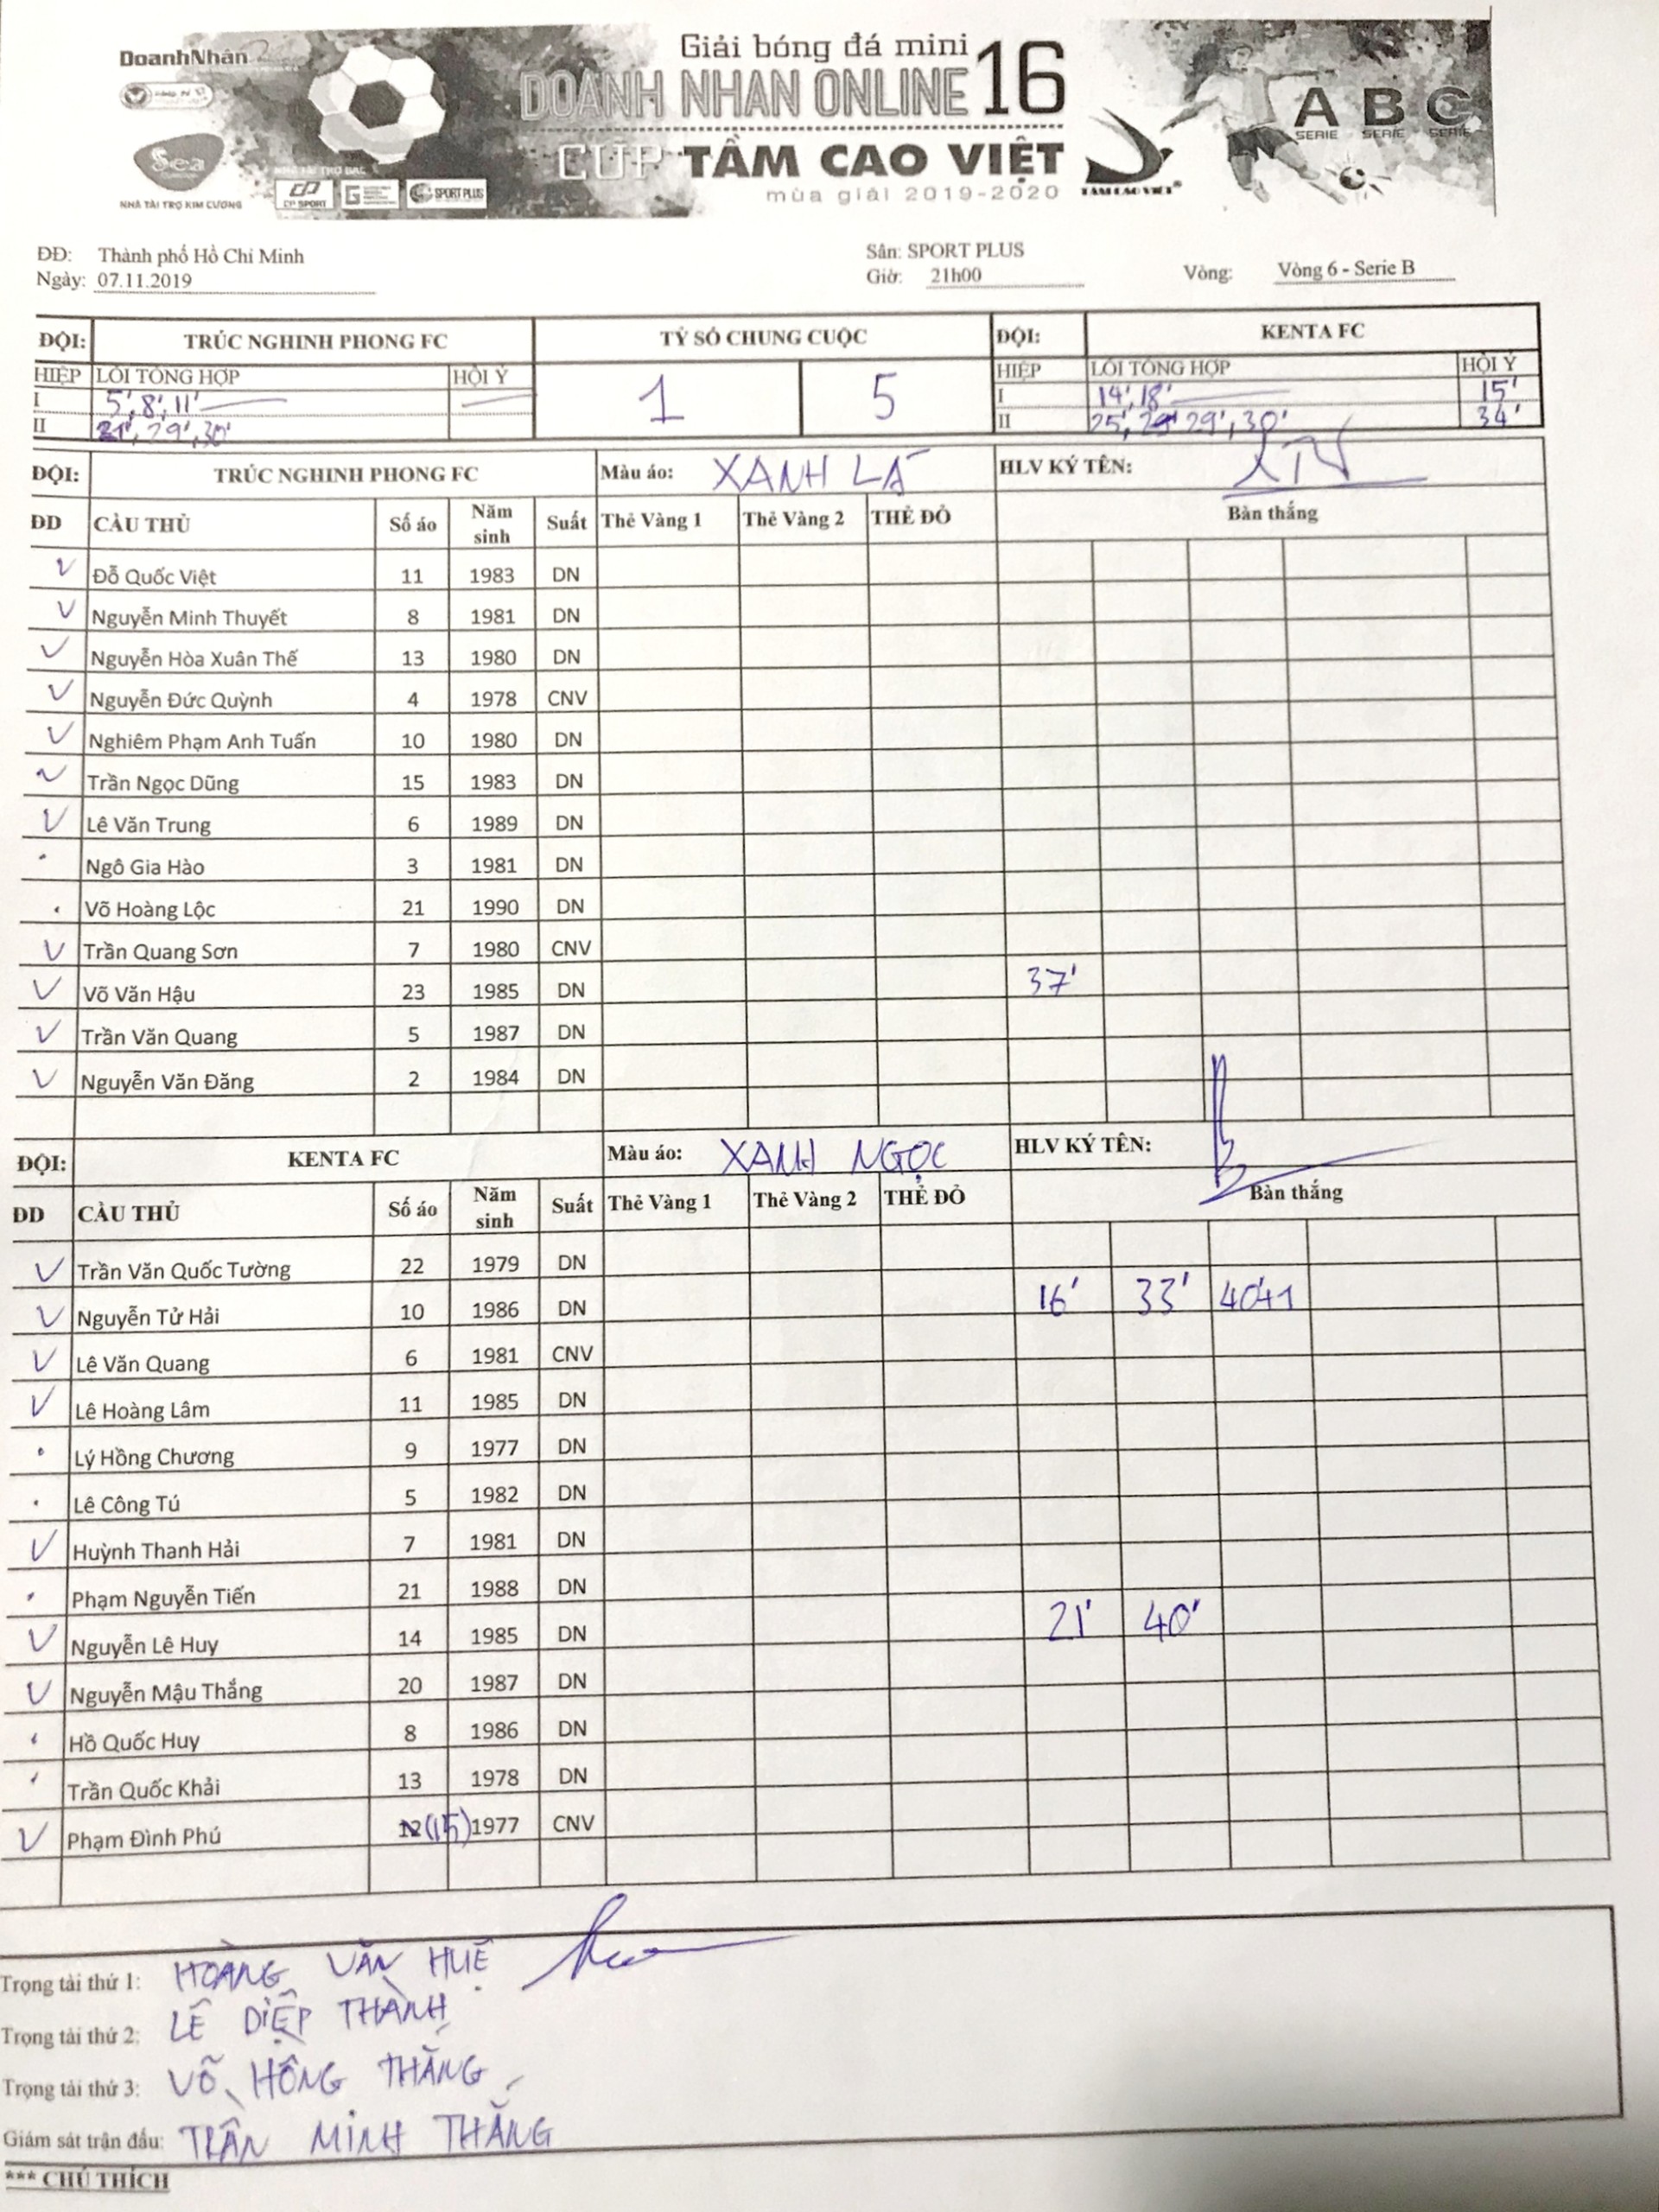 DoanhNhân
Giải bóng đá mini
DOANH NHAN ONLINE 16
CUP TẦM CAO VIỆT
mùa giải 2019-2020
A B C
SERIE SERIE SERIE
Sea
NHÀ TÀI TRỢ KIM CƯƠNG
NHÀ TÀI TRỢ BẠC
CP SPORT
SPORT PLUS
TẦM CAO VIỆT
ĐĐ: Thành phố Hồ Chí Minh Sân: SPORT PLUS
Ngày: 07.11.2019 Giờ: 21h00 Vòng: Vòng 6 - Serie B
ĐỘI: TRÚC NGHINH PHONG FC TỶ SỐ CHUNG CUỘC ĐỘI: KENTA FC
HIỆP LỖI TỔNG HỢP HỘI Ý 1 5 HIỆP LỖI TỔNG HỢP HỘI Ý
I 5', 8', 11' I 14', 18' 15'
II 21', 29', 30' II 25', 29', 30' 34'
ĐỘI: TRÚC NGHINH PHONG FC Màu áo: XANH LÁ HLV KÝ TÊN:
ĐD CẦU THỦ Số áo Năm sinh Suất Thẻ Vàng 1 Thẻ Vàng 2 THẺ ĐỎ Bàn thắng
Đỗ Quốc Việt 11 1983 DN
Nguyễn Minh Thuyết 8 1981 DN
Nguyễn Hòa Xuân Thế 13 1980 DN
Nguyễn Đức Quỳnh 4 1978 CNV
Nghiêm Phạm Anh Tuấn 10 1980 DN
Trần Ngọc Dũng 15 1983 DN
Lê Văn Trung 6 1989 DN
Ngô Gia Hào 3 1981 DN
Võ Hoàng Lộc 21 1990 DN
Trần Quang Sơn 7 1980 CNV
Võ Văn Hậu 23 1985 DN 37'
Trần Văn Quang 5 1987 DN
Nguyễn Văn Đăng 2 1984 DN
ĐỘI: KENTA FC Màu áo: XANH NGỌC HLV KÝ TÊN:
ĐD CẦU THỦ Số áo Năm sinh Suất Thẻ Vàng 1 Thẻ Vàng 2 THẺ ĐỎ Bàn thắng
Trần Văn Quốc Tường 22 1979 DN
Nguyễn Tử Hải 10 1986 DN 16' 33' 40'+1
Lê Văn Quang 6 1981 CNV
Lê Hoàng Lâm 11 1985 DN
Lý Hồng Chương 9 1977 DN
Lê Công Tú 5 1982 DN
Huỳnh Thanh Hải 7 1981 DN
Phạm Nguyễn Tiến 21 1988 DN
Nguyễn Lê Huy 14 1985 DN 21' 40'
Nguyễn Mậu Thắng 20 1987 DN
Hồ Quốc Huy 8 1986 DN
Trần Quốc Khải 13 1978 DN
Phạm Đình Phú 12 (15) 1977 CNV
Trọng tài thứ 1: HOÀNG VĂN HUỆ
Trọng tài thứ 2: LÊ DIỆP THÀNH
Trọng tài thứ 3: VÕ HỒNG THẮNG
Giám sát trận đấu: TRẦN MINH THẮNG
*** CHÚ THÍCH